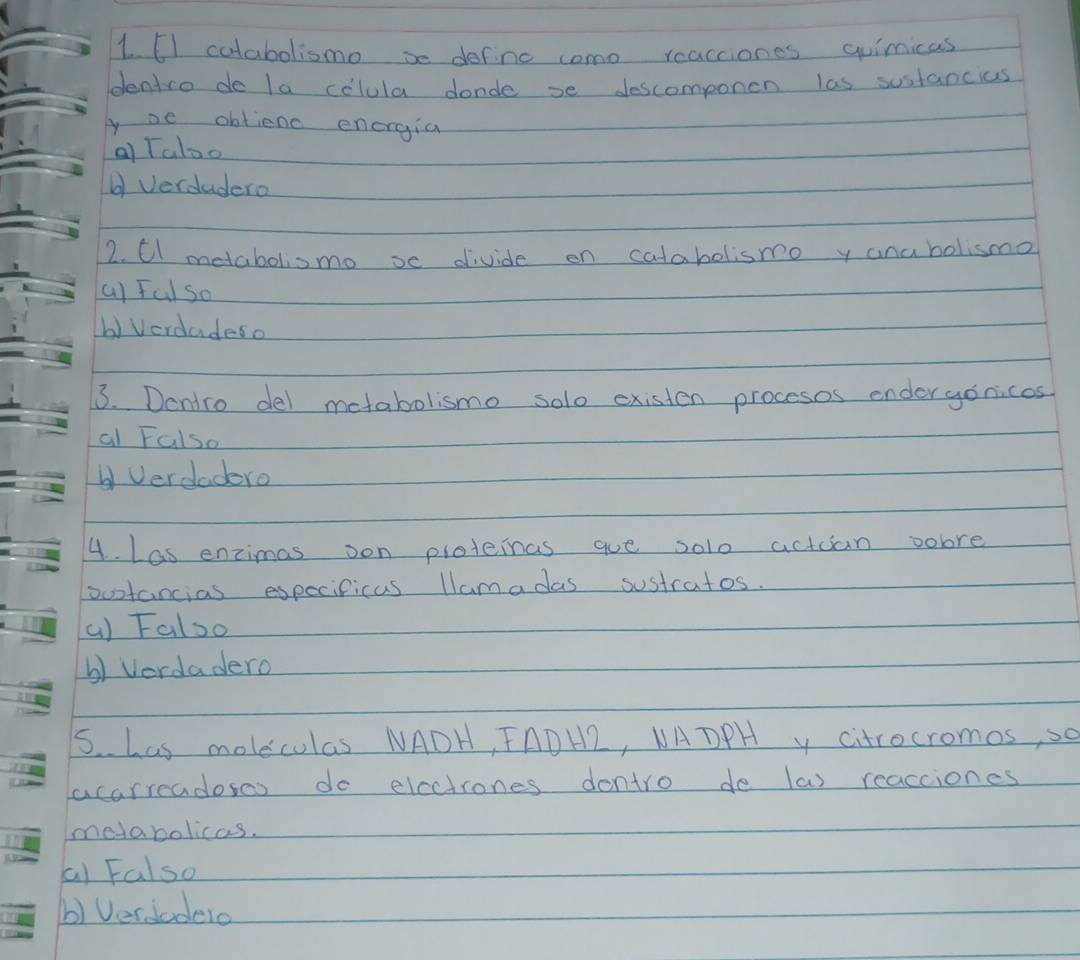 1. El catabolismo se define como reacciones químicas
dentro de la célula donde se descomponen las sustancias
y se obtiene energía
a) Falso
b) Verdadero
2. El metabolismo se divide en catabolismo y anabolismo
a) Falso
b) Verdadero
3. Dentro del metabolismo solo existen procesos endergónicos
a) Falso
b) Verdadero
4. Las enzimas son proteínas que solo actúan sobre
sustancias especificas llamadas sustratos.
a) Falso
b) Verdadero
5. Las moléculas NADH, FADH2, NADPH y citrocromos, so
acarreadores de electrones dentro de las reacciones
metabolicas.
a) Falso
b) Verdadero